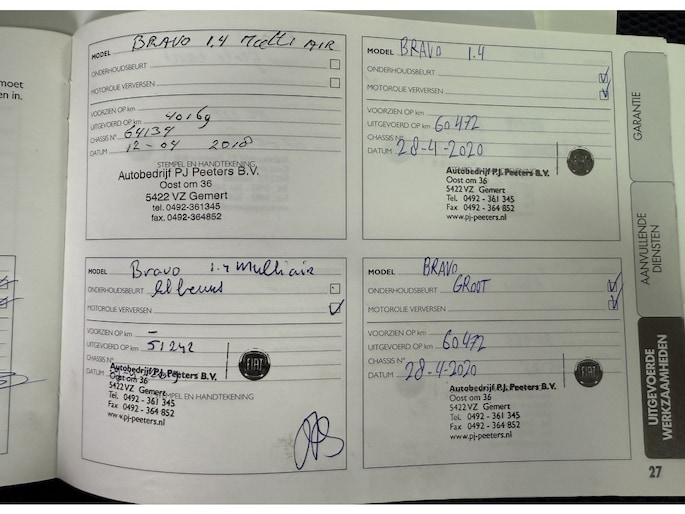 moet
en in.
MODEL BRAVO 1.4 Multi AIR
ONDERHOUDSBEURT
MOTOROLIE VERVERSEN
VOORZIEN OP km 40169
UITGEVOERD OP km
CHASSIS N° 64134
DATUM 12-04 2018
STEMPEL EN HANDTEKENING
Autobedrijf PJ Peeters B.V.
Oost om 36
5422 VZ Gemert
tel. 0492-361345
fax. 0492-364852
MODEL BRAVO 1.4
ONDERHOUDSBEURT
MOTOROLIE VERVERSEN
VOORZIEN OP km
UITGEVOERD OP km 60472
CHASSIS N°
DATUM 28-4-2020
FIAT
Autobedrijf P.J. Peeters B.V.
Oost om 36
5422VZ Gemert
Tel. 0492 - 361 345
Fax 0492 - 364 852
www.pj-peeters.nl
MODEL Bravo 1.4 Multiair
ONDERHOUDSBEURT
MOTOROLIE VERVERSEN
VOORZIEN OP km –
UITGEVOERD OP km 51242
CHASSIS N°
DATUM
FIAT
Autobedrijf P.J. Peeters B.V.
Oost om 36
5422VZ Gemert
STEMPEL EN HANDTEKENING
Tel. 0492 - 361 345
Fax 0492 - 364 852
www.pj-peeters.nl
MODEL BRAVO
ONDERHOUDSBEURT GROOT
MOTOROLIE VERVERSEN
VOORZIEN OP km
UITGEVOERD OP km 60472
CHASSIS N°
DATUM 28-4-2020
FIAT
Autobedrijf P.J. Peeters B.V.
Oost om 36
5422VZ Gemert
Tel. 0492 - 361 345
Fax 0492 - 364 852
www.pj-peeters.nl
GARANTIE
AANVULLENDE
DIENSTEN
UITGEVOERDE
WERKZAAMHEDEN
27